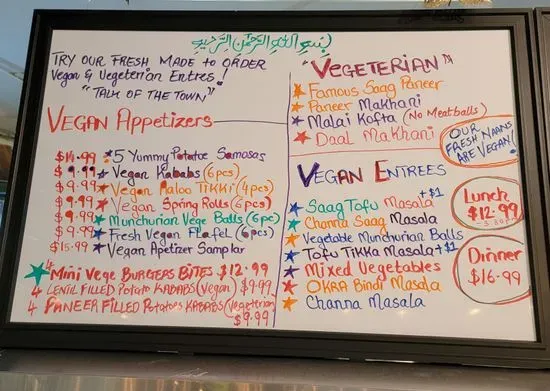 بسم الله الرحمن الرحيم
TRY OUR FRESH MADE to ORDER
Vegan & Vegeterian Entres!
"TALK OF THE TOWN"
VEGAN Appetizers
$14.99 5 Yummy Potatoe Samosas
$9.99 Vegan Kababs (6pcs)
$9.99 Vegan Aaloo Tikki (4pcs)
$9.99 Vegan Spring Rolls (6pcs)
$9.99 Munchurian Vege Balls (6pc)
$9.99 Fresh Vegan Flafel (6pcs)
$15.99 Vegan Apetizer Samplar
4 Mini Vege BURGERS BITES $12.99
4 LENTIL FILLED Potato KABABS (Vegan) $9.99
4 PANEER FILLED Potatoes KABABS (Vegeterian)
$9.99
"VEGETERIAN"
Famous Saag Paneer
Paneer Makhani
Malai Kofta (No Meatballs)
Daal Makhani
OUR
FRESH NAANS
ARE VEGAN!
VEGAN ENTREES
Saag Tofu Masala +$1
Channa Saag Masala
Vegetable Munchurian Balls
Tofu Tikka Masala +$1
Mixed Vegetables
OKRA Bindi Masala
Channa Masala
Lunch
$12.99
Dinner
$16.99